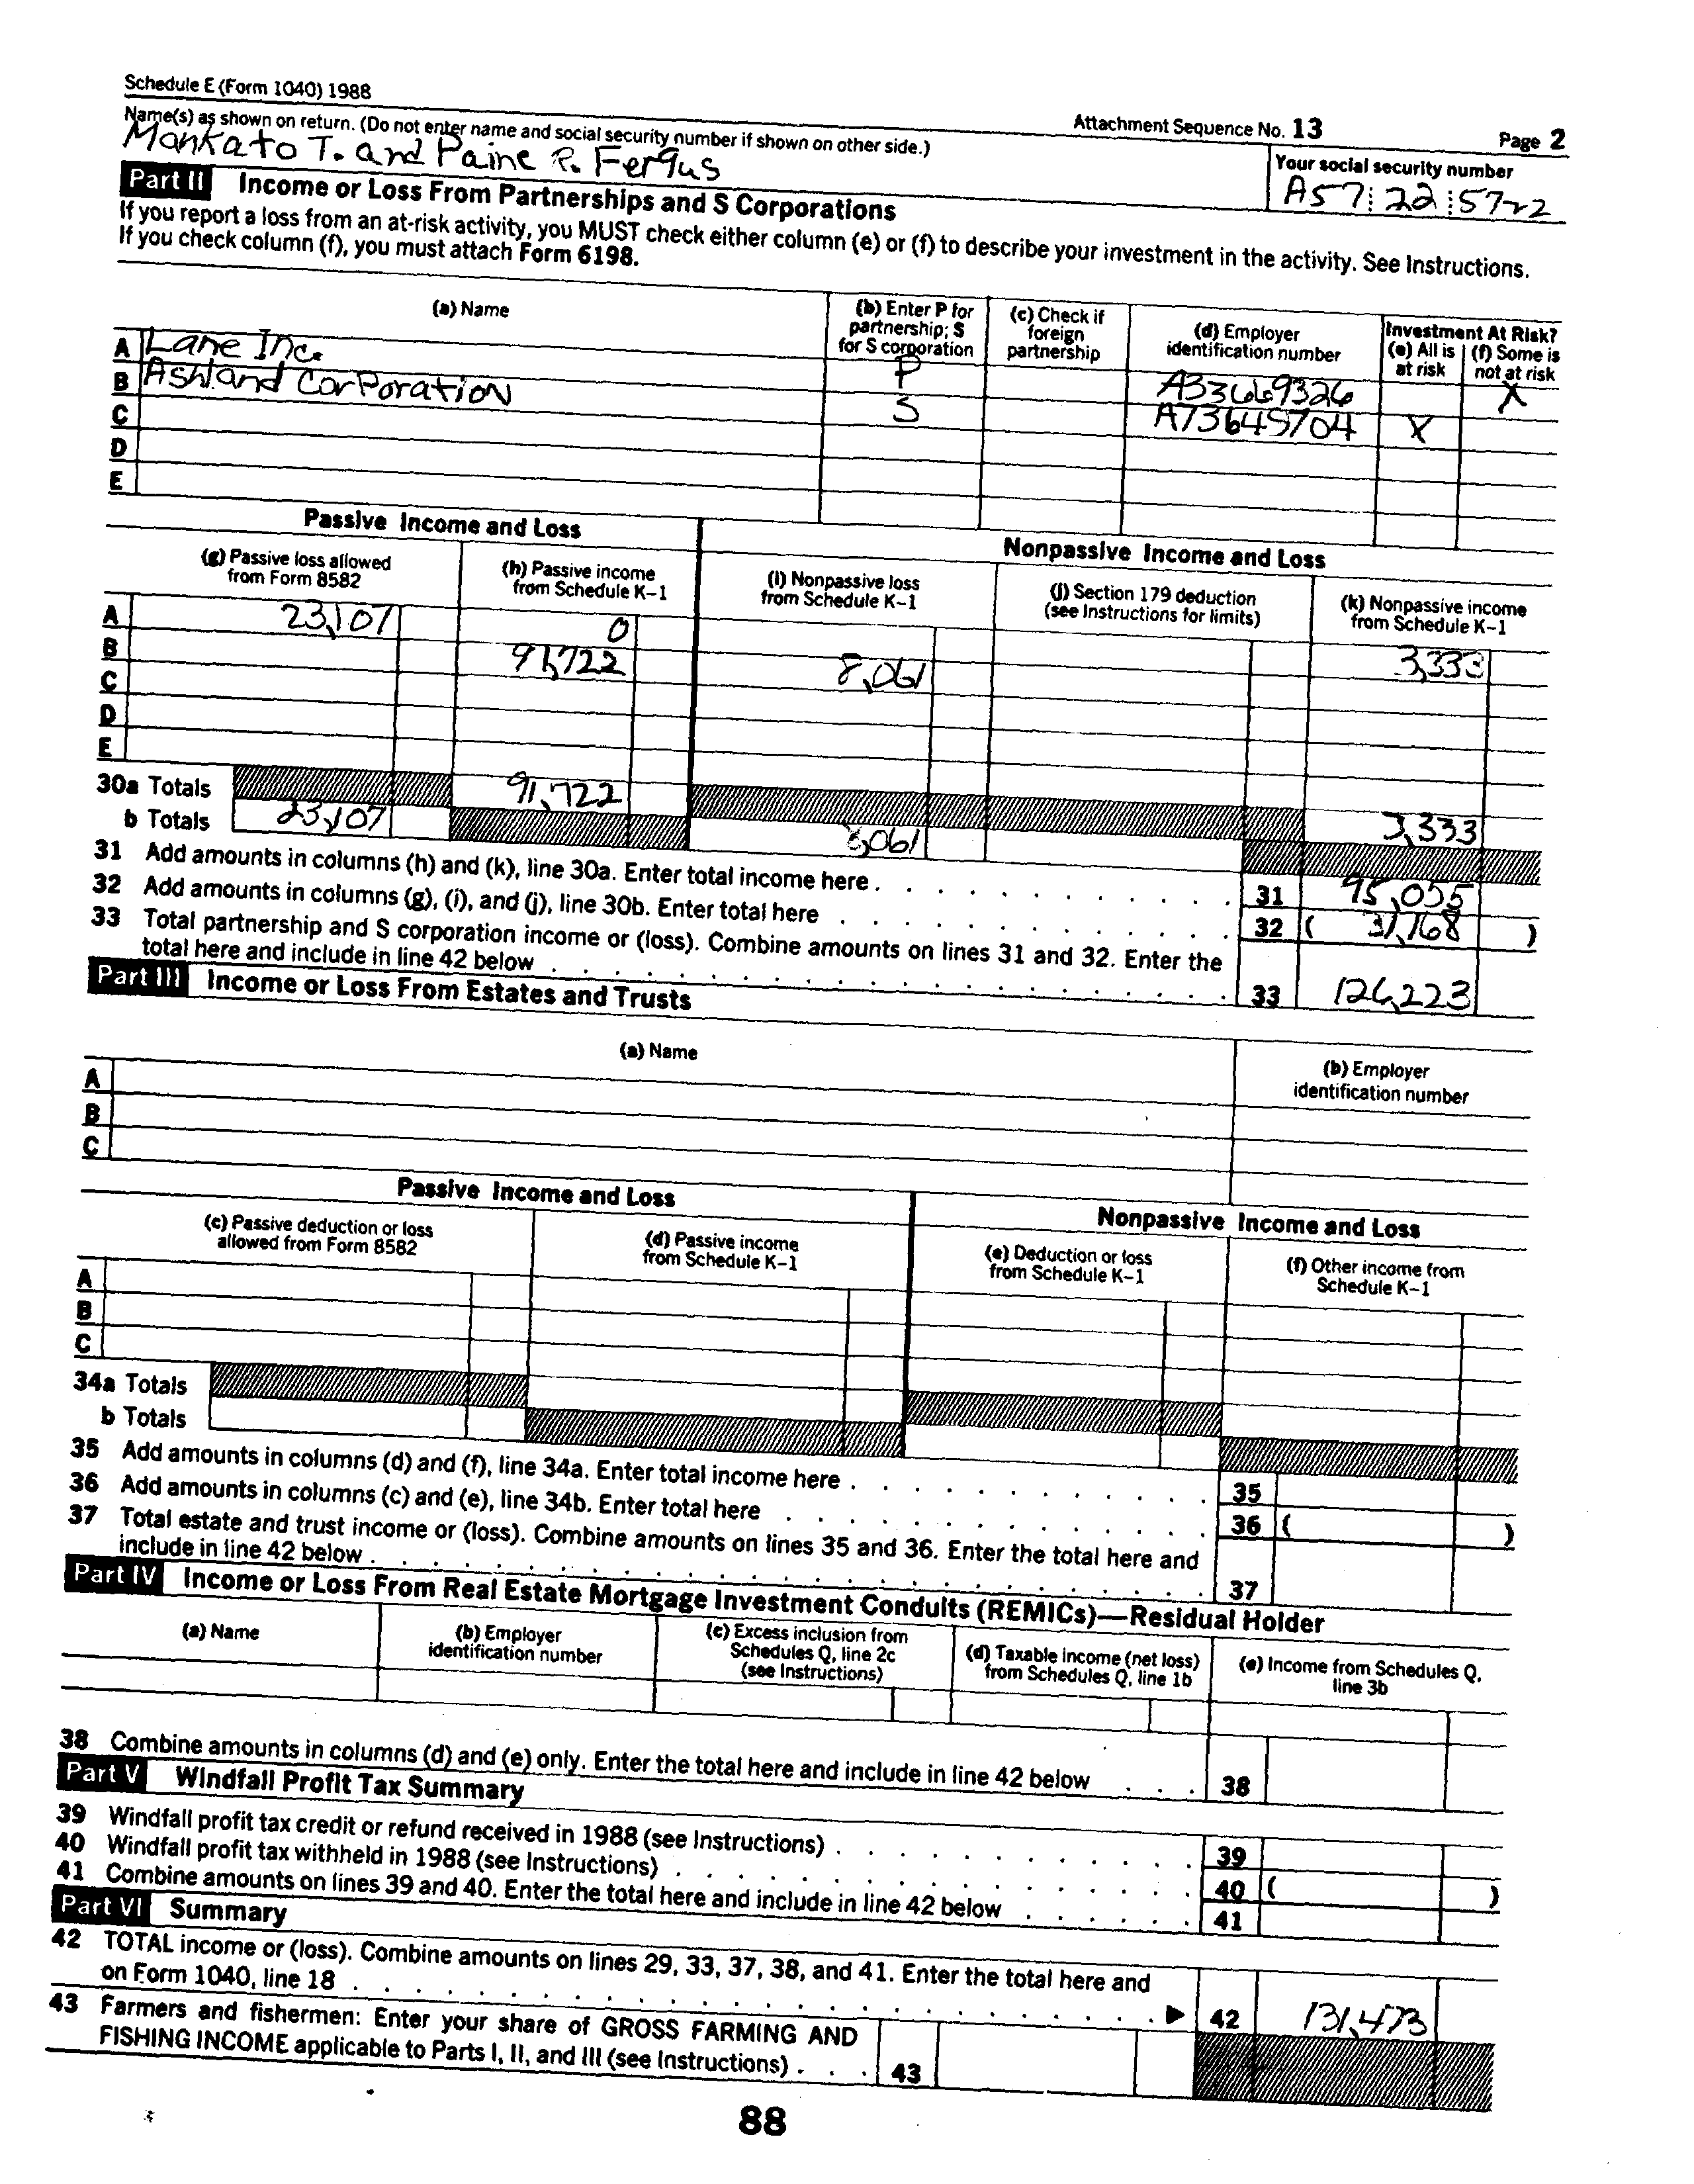 Schedule E (Form 1040) 1988
Attachment Sequence No. 13
Page 2
Name(s) as shown on return. (Do not enter name and social security number if shown on other side.)
Mankato T. and Paine P. Fergus
Your social security number
A57 22 5722
Part II Income or Loss From Partnerships and S Corporations
If you report a loss from an at-risk activity, you MUST check either column (e) or (f) to describe your investment in the activity. See Instructions.
If you check column (f), you must attach Form 6198.
(a) Name
(b) Enter P for partnership; S for S corporation
(c) Check if foreign partnership
(d) Employer identification number
Investment At Risk?
(e) All is at risk
(f) Some is not at risk
A Lane Inc. P A33669326 X
B Ashland Corporation S A73645704 X
C
D
E
Passive Income and Loss
Nonpassive Income and Loss
(g) Passive loss allowed from Form 8582
(h) Passive income from Schedule K-1
(i) Nonpassive loss from Schedule K-1
(j) Section 179 deduction (see Instructions for limits)
(k) Nonpassive income from Schedule K-1
A 23,107 0 3,333
B 91,722 8,061
C
D
E
30a Totals 91,722 3,333
b Totals 23,107 8,061
31 Add amounts in columns (h) and (k), line 30a. Enter total income here . 31 95,055
32 Add amounts in columns (g), (i), and (j), line 30b. Enter total here 32 ( 31,168 )
33 Total partnership and S corporation income or (loss). Combine amounts on lines 31 and 32. Enter the
total here and include in line 42 below 33 126,223
Part III Income or Loss From Estates and Trusts
(a) Name
(b) Employer identification number
A
B
C
Passive Income and Loss
Nonpassive Income and Loss
(c) Passive deduction or loss allowed from Form 8582
(d) Passive income from Schedule K-1
(e) Deduction or loss from Schedule K-1
(f) Other income from Schedule K-1
A
B
C
34a Totals
b Totals
35 Add amounts in columns (d) and (f), line 34a. Enter total income here . 35
36 Add amounts in columns (c) and (e), line 34b. Enter total here 36 ( )
37 Total estate and trust income or (loss). Combine amounts on lines 35 and 36. Enter the total here and
include in line 42 below . 37
Part IV Income or Loss From Real Estate Mortgage Investment Conduits (REMICs)—Residual Holder
(a) Name
(b) Employer identification number
(c) Excess inclusion from Schedules Q, line 2c (see Instructions)
(d) Taxable income (net loss) from Schedules Q, line 1b
(e) Income from Schedules Q, line 3b
38 Combine amounts in columns (d) and (e) only. Enter the total here and include in line 42 below 38
Part V Windfall Profit Tax Summary
39 Windfall profit tax credit or refund received in 1988 (see Instructions) . 39
40 Windfall profit tax withheld in 1988 (see Instructions) . 40 ( )
41 Combine amounts on lines 39 and 40. Enter the total here and include in line 42 below 41
Part VI Summary
42 TOTAL income or (loss). Combine amounts on lines 29, 33, 37, 38, and 41. Enter the total here and
on Form 1040, line 18 . ▶ 42 131,473
43 Farmers and fishermen: Enter your share of GROSS FARMING AND
FISHING INCOME applicable to Parts I, II, and III (see Instructions) . 43
88